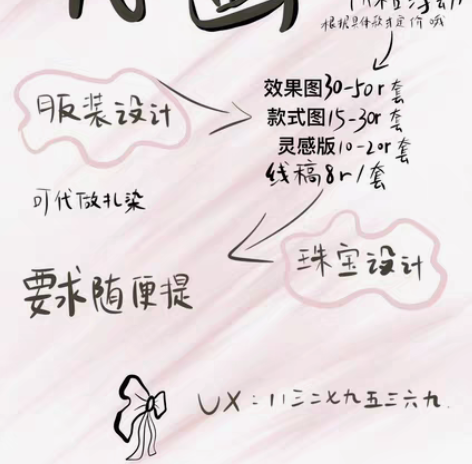 画
根据具体款式定价哦
服装设计
效果图30-50r套
款式图15-30r套
灵感版10-20r套
线稿8r/套
可代做扎染
珠宝设计
要求随便提
UX：八三二七九五三六九